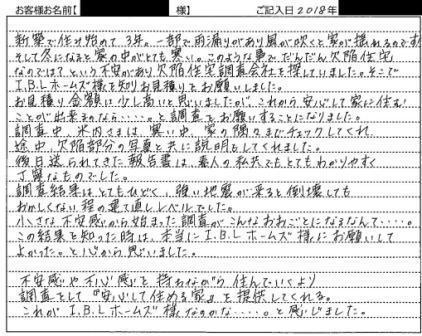 お客様お名前【 様】 ご記入日2018年
新築で住み始めて3年。一部で雨漏りがあり風が吹くと家が揺れるので
そして冬になると家の中がとても寒い。このような事で、だんだん欠陥住宅
なのでは?という不安があり欠陥住宅調査会社を探していました。そこで
I.B.Lホームズ様を知りお見積りをお願いしました。
お見積り金額は少し高いと思いましたが、これから安心して家に住む
ことが出来るのなら・・・・と調査をお願いすることになりました。
調査中、米内さまは、寒い中、家の隅々までチェックしてくれ
途中、欠陥部分の写真と共に説明もしてくれました。
後日送られてきた報告書は、素人の私共でもとてもわかりやすく
丁寧なものでした。
調査結果はとてもひどく、強い地震が来ると倒壊しても
おかしくない程の違うレベルでした。
小さな不安感から始まった調査がこんなおおごとになるなんて・・・・。
この結果を知った時は、本当にI.B.Lホームズ様にお願いして
よかった。と心から思いました。
不安感や不心感を持ちながら住んでいくより
調査をして『安心して住める家』を提供してくれる。
これがI.B.Lホームズ様なのかな・・・・。と感じました。